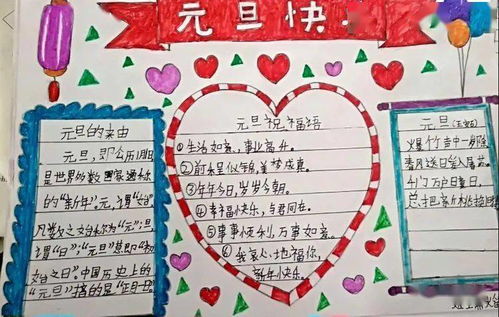 元旦快
元旦的来由
元旦,即公历1月1日
是世界多数国家通称
的"新年"。元,谓"始",
凡数之始称为"元";旦
谓"日";"元旦"意即"初
始之日"。中国历史上的
"元旦"指的是"正月一日"。
元旦祝福语
①生活如意,事业高升。
②前程似锦,美梦成真。
③年年今日,岁岁今朝。
④幸福快乐,与君同在。
⑤事事顺利,万事如意。
⑥我衷心地福你,
新年快乐。
元日(王安石)
爆竹声中一岁除
春风送日笔入屠苏
千门万户日
总把新桃换旧